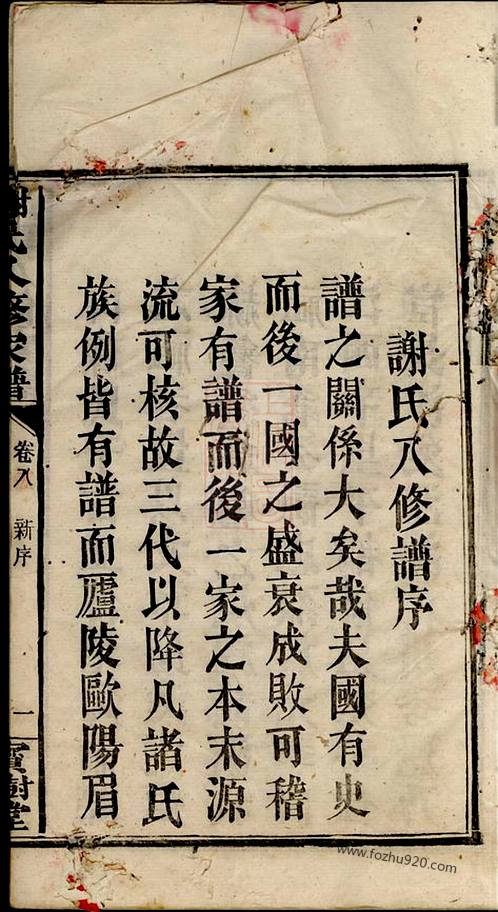 謝氏八修譜序
譜之關係大矣哉夫國有史
而後一國之盛衰成敗可稽
家有譜而後一家之本末源
流可核故三代以降凡諸氏
族例皆有譜而廬陵歐陽眉
謝氏八修家譜
卷八
新序
一
寶樹堂
www.fozhu920.com